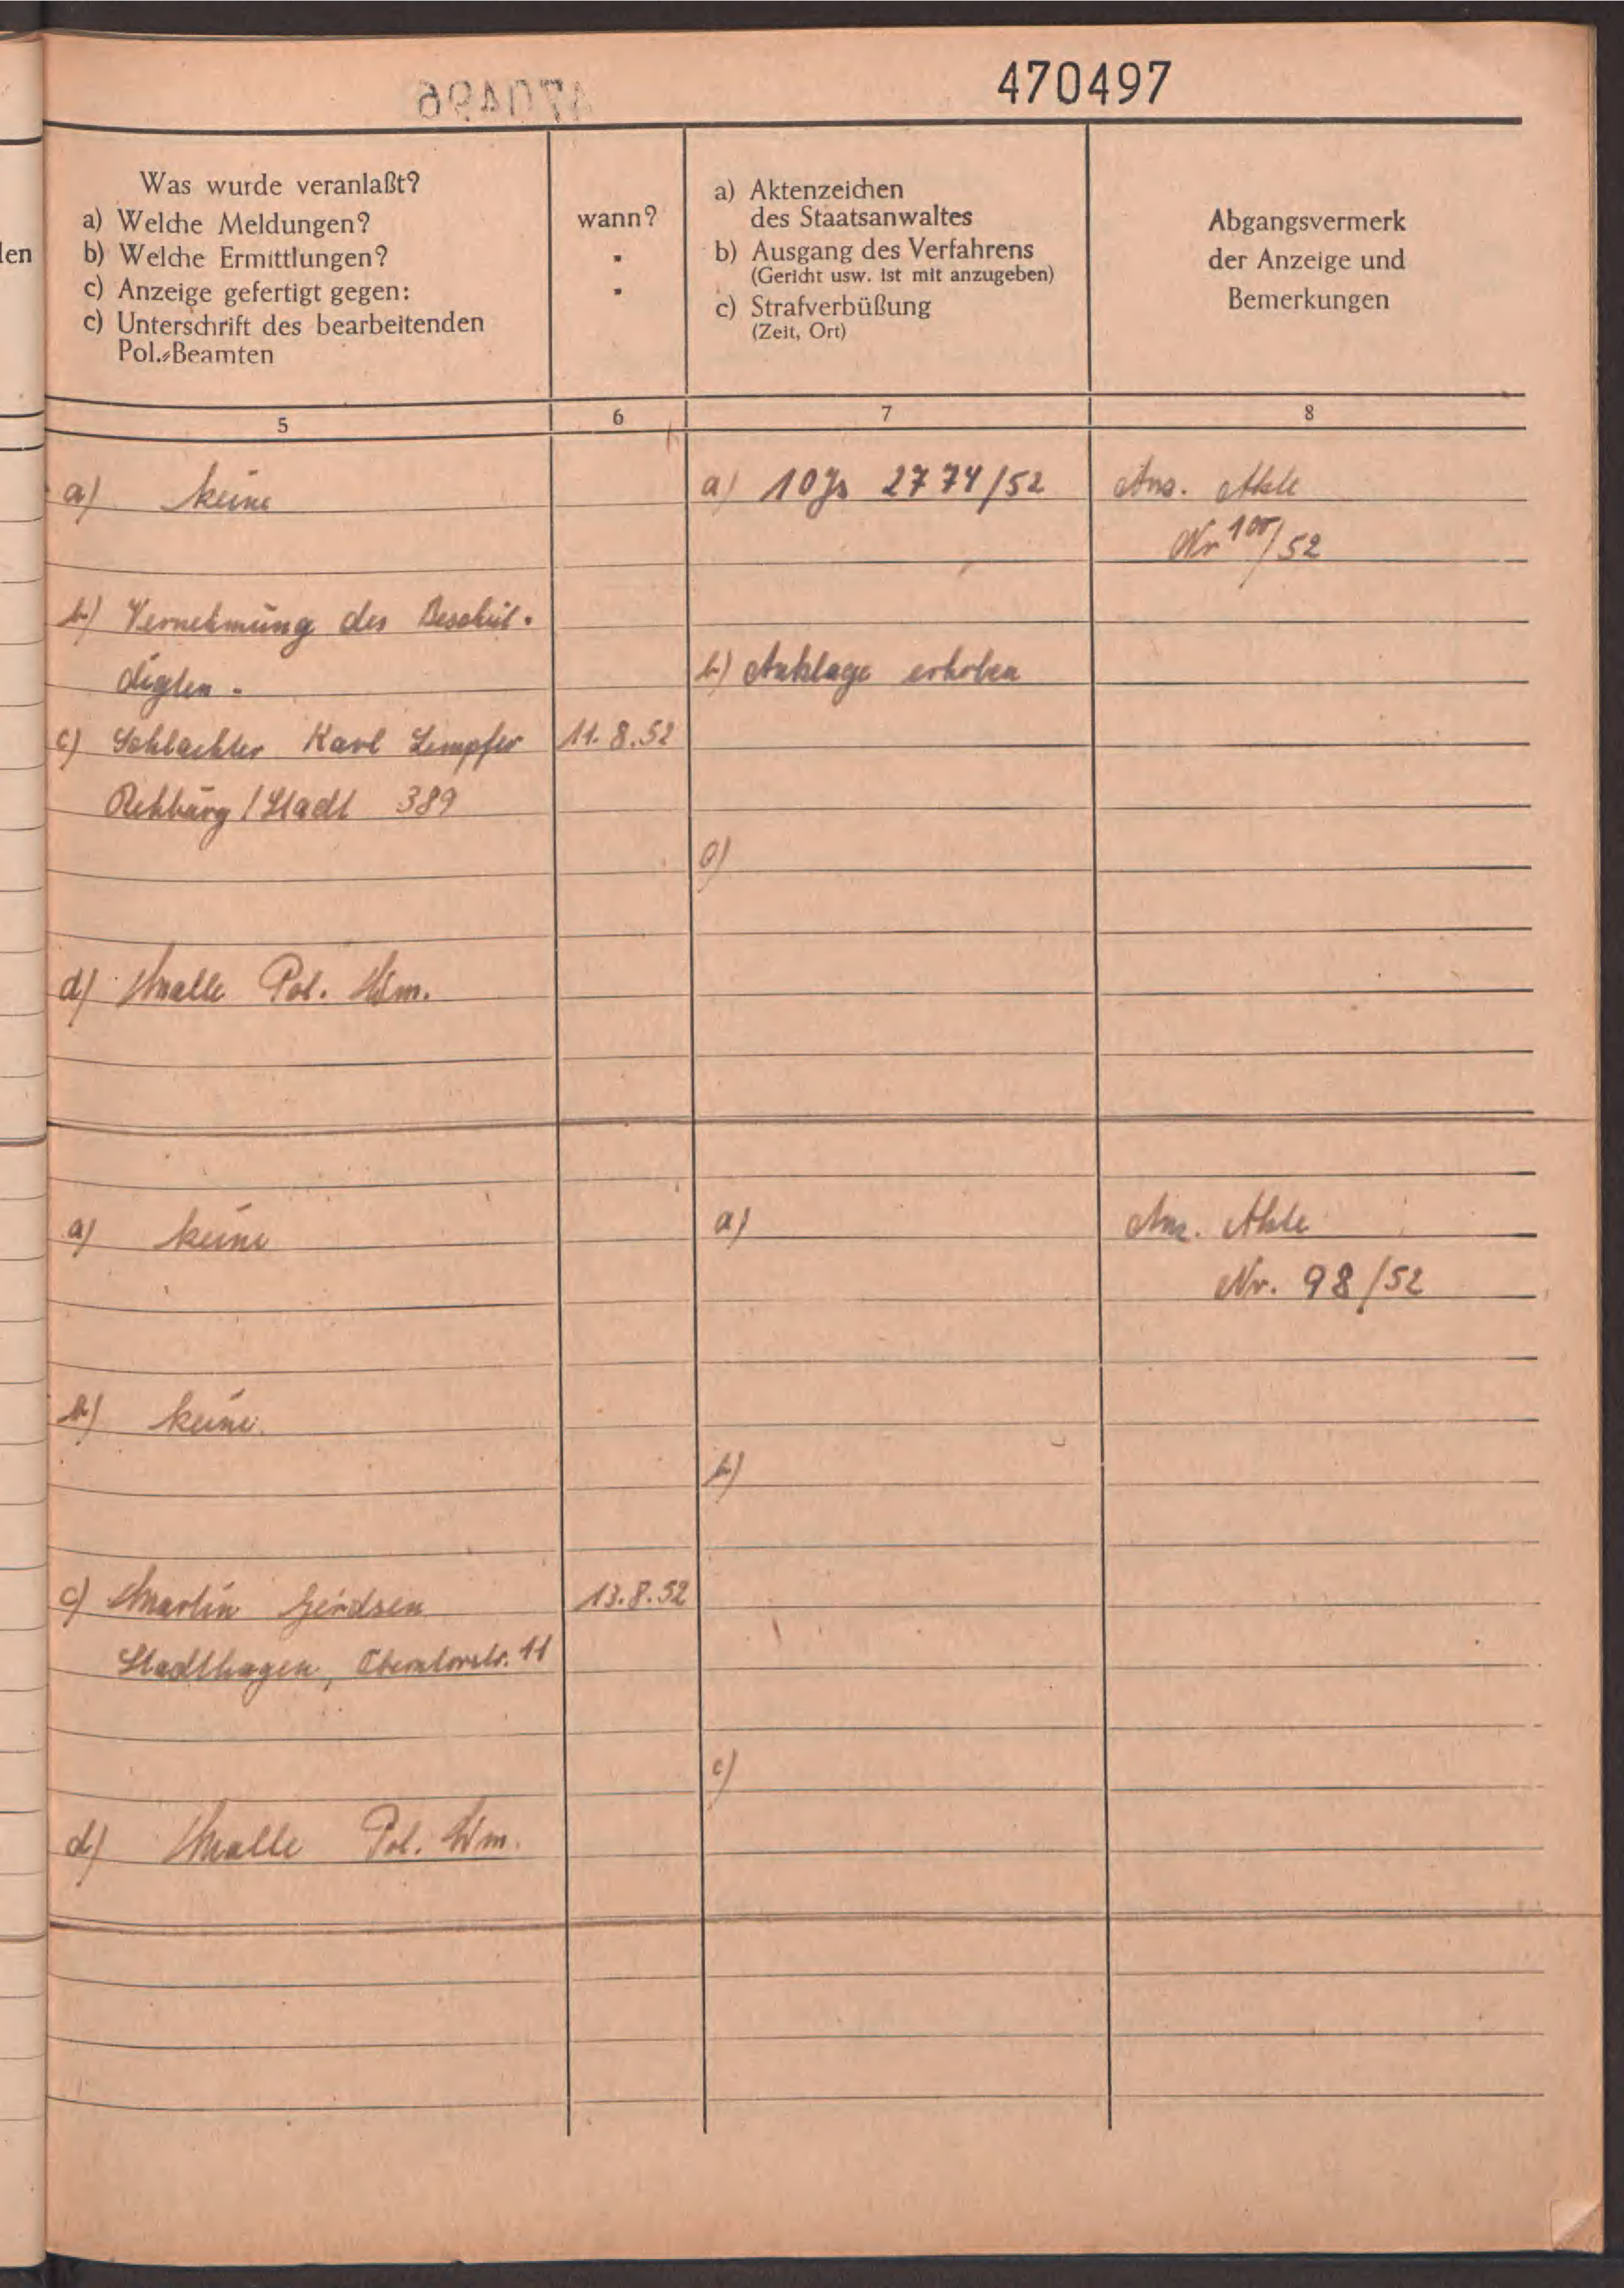 470497
Was wurde veranlaßt?
a) Welche Meldungen?
b) Welche Ermittlungen?
c) Anzeige gefertigt gegen:
c) Unterschrift des bearbeitenden
Pol.-Beamten
wann?
a) Aktenzeichen
des Staatsanwaltes
b) Ausgang des Verfahrens
(Gericht usw. ist mit anzugeben)
c) Strafverbüßung
(Zeit, Ort)
Abgangsvermerk
der Anzeige und
Bemerkungen
len
5
6
7
8
a) keine
a) 10 Js 2774/52
Anz. Akte
Nr 100/52
b) Vernehmung des Beschul-
digten.
b) Anklage erhoben
c) Schlachter Karl Lempfer
11.8.52
Rehburg/Stadt 389
c)
d) Malle Pol. Wm.
a) keine
a)
Anz. Akte
Nr. 98/52
b) keine.
b)
c) Martin Gerdsen
13.8.52
Stadthagen, Oberntorstr. 11
c)
d) Malle Pol. Wm.